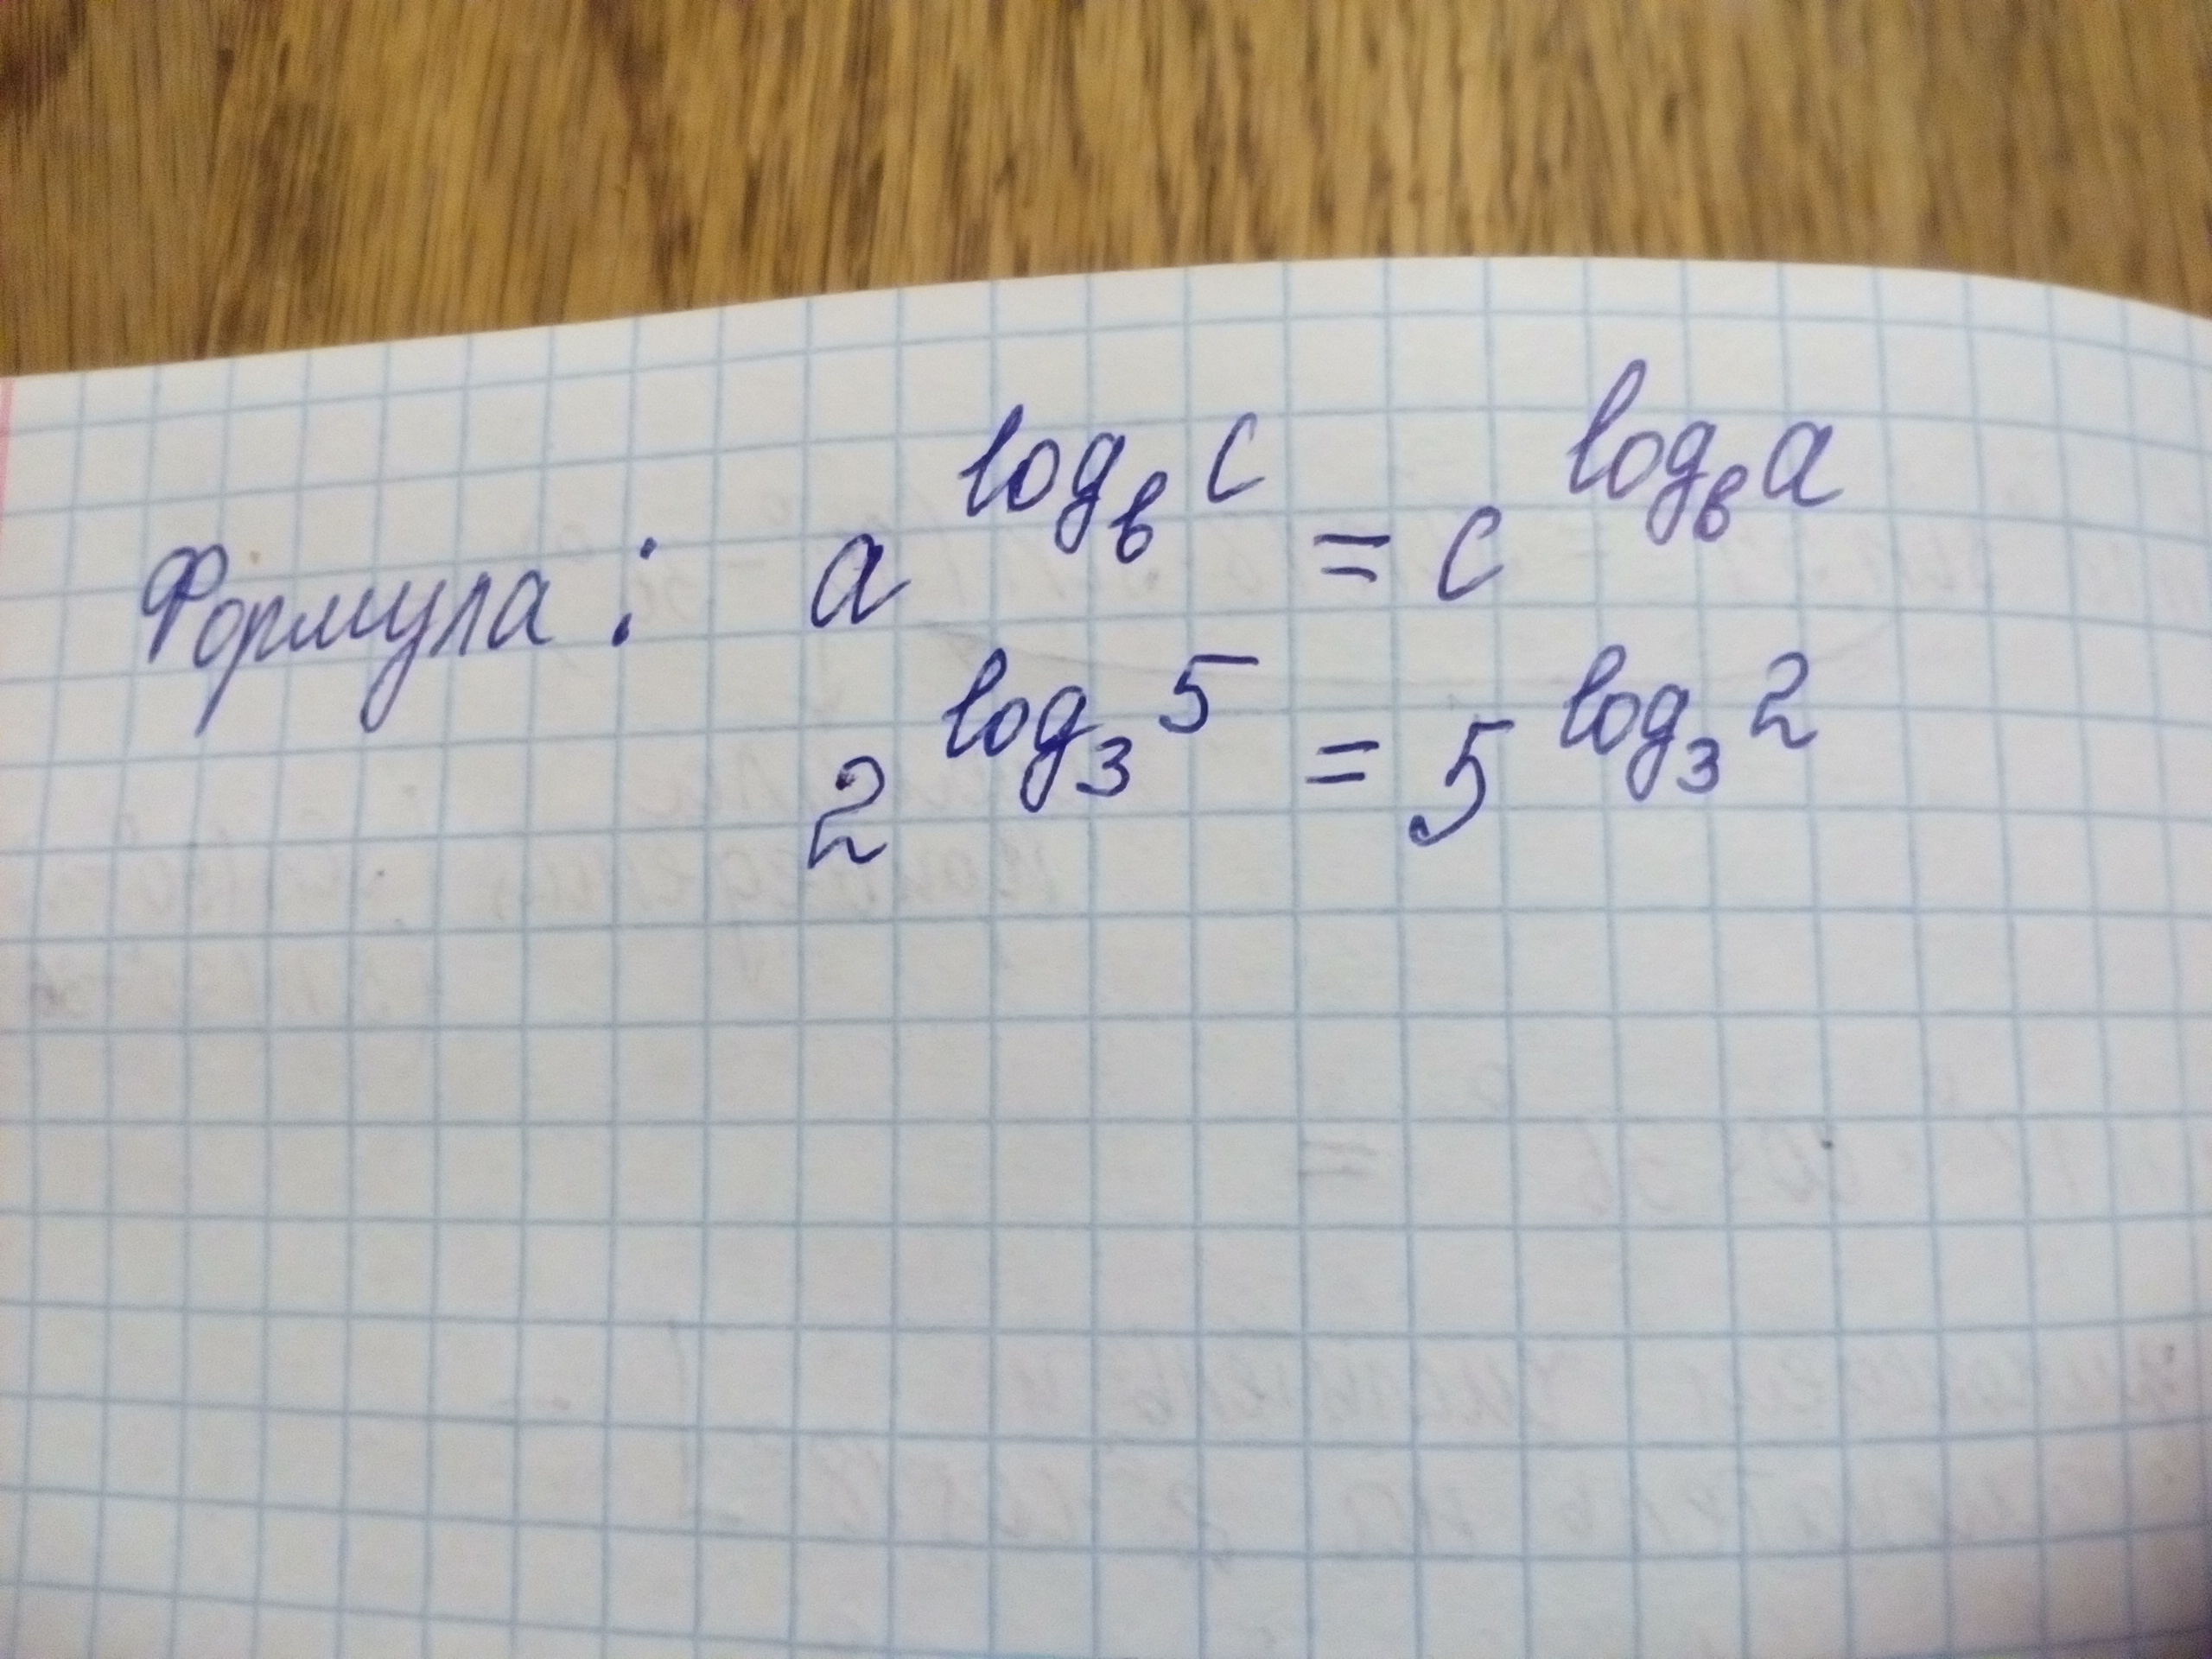 Формула: a^{log_b c} = c^{log_b a}
2^{log_3 5} = 5^{log_3 2}